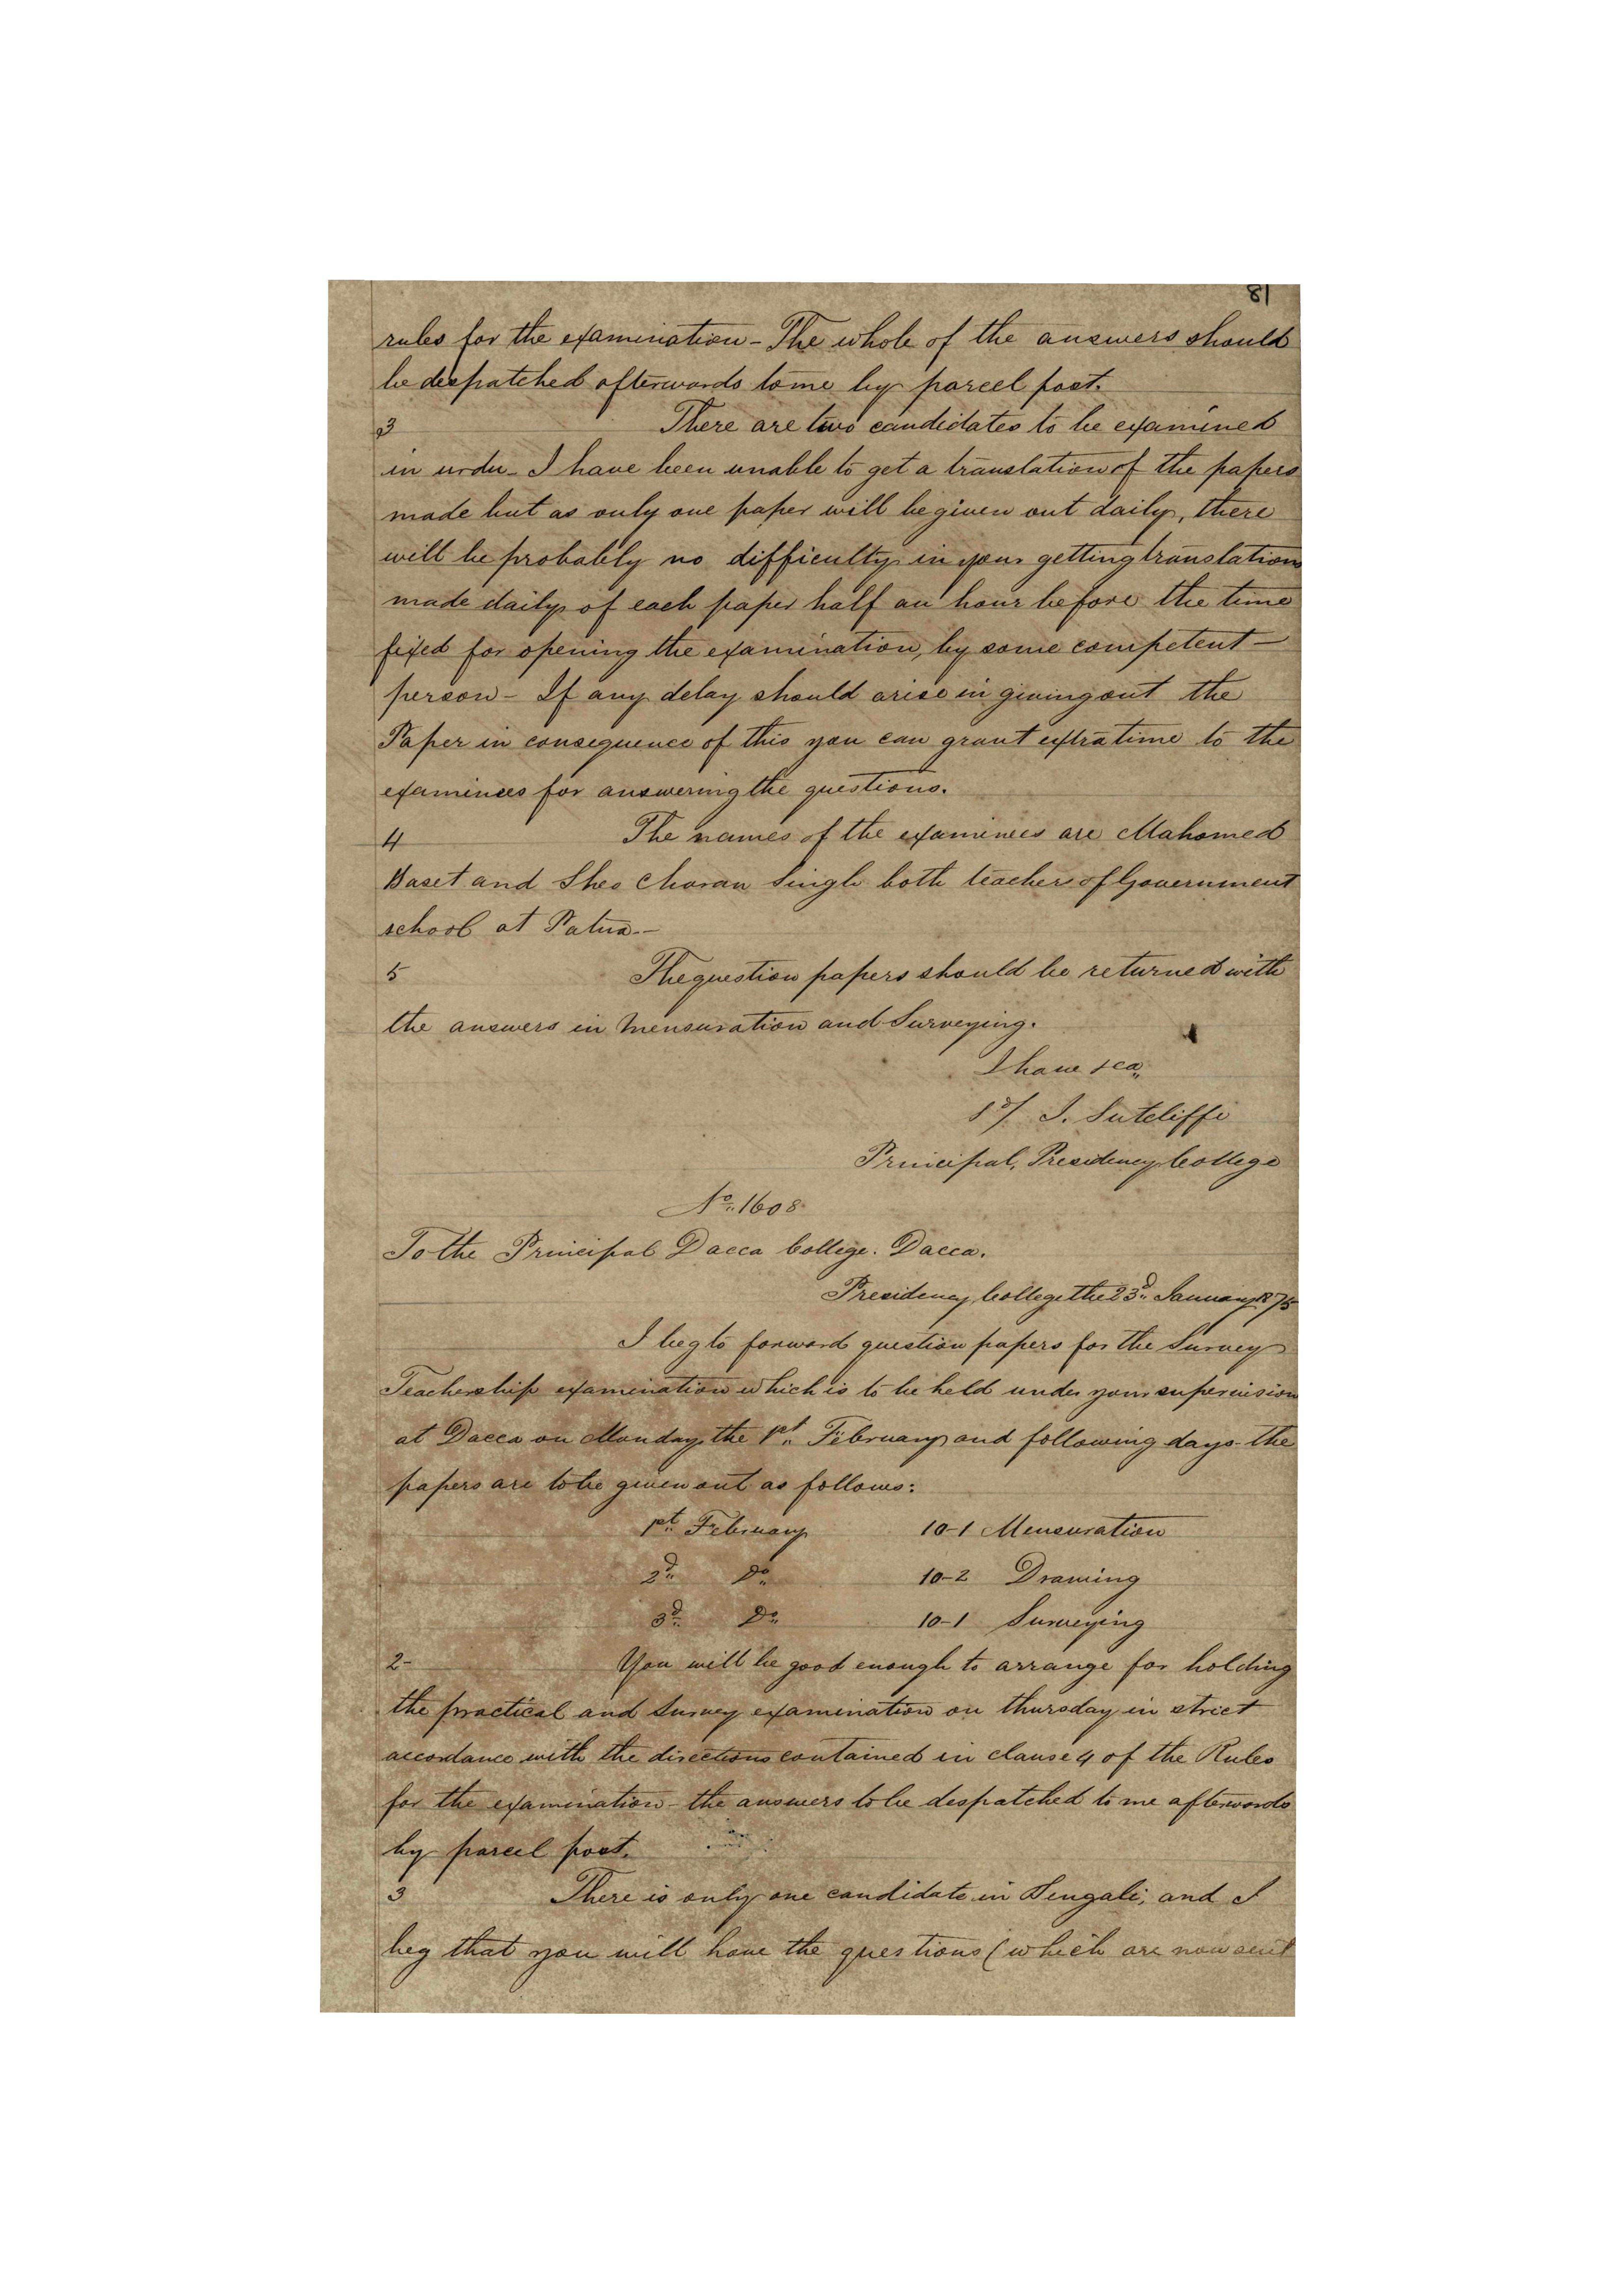 81
rules for the examination - The whole of the answers should
be despatched afterwards to me by parcel post.
3 There are two candidates to be examined
in urdu - I have been unable to get a translation of the papers
made but as only one paper will be given out daily, there
will be probably no difficulty in your getting translations
made daily of each paper half an hour before the time
fixed for opening the examination, by some competent -
person - If any delay should arise in giving out the
Paper in consequence of this you can grant extra time to the
examinees for answering the questions.
4 The names of the examinees are Mahomed
Baset and Sheo Charan Singh both teachers of Government
school at Patna. -
5 The question papers should be returned with
the answers in Mensuration and Surveying.
I have &ca,,
Sd/ J. Sutcliffe
Principal, Presidency College
No. 1608
To the Principal Dacca College. Dacca.
Presidency College the 23d. January 1875
I beg to forward question papers for the Survey
Teachership examination which is to be held under your supervision
at Dacca on Monday the 1st. February and following days - the
papers are to be given out as follows:
1st. February 10-1 Mensuration
2d. Do. 10-2 Drawing
3d. Do. 10-1 Surveying
2- You will be good enough to arrange for holding
the practical and Survey examination on thursday in strict
accordance with the directions contained in clause 4 of the Rules
for the examination - the answers to be despatched to me afterwards
by parcel post.
3 There is only one candidate in Bengali; and I
beg that you will have the questions (which are now sent